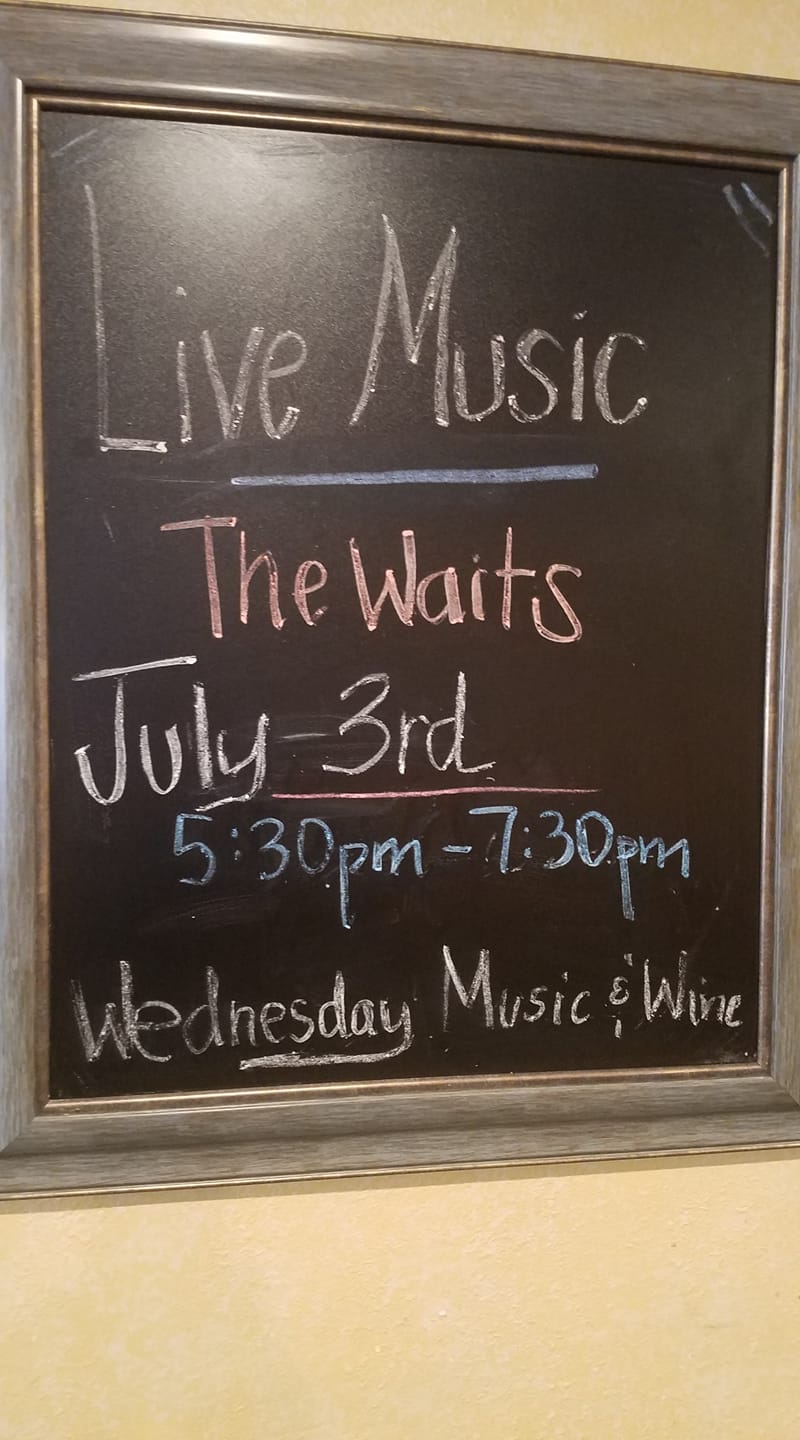 Live Music
The Waits
July 3rd
5:30pm - 7:30pm
Wednesday Music & Wine